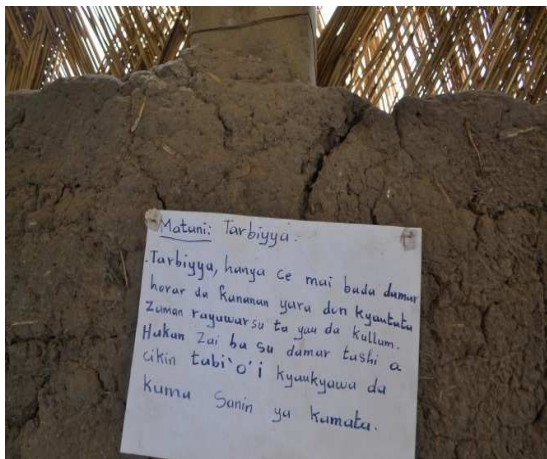 Matani: Tarbiyya.
Tarbiyya, hanya ce mai bada damar
horar da Kananan yara don kyautata
zaman rayuwarsu ta yau da kullum.
Hakan zai ba su damar tashi a
cikin tabi'o'i kyaukyawa da
kuma Sanin ya kamata.